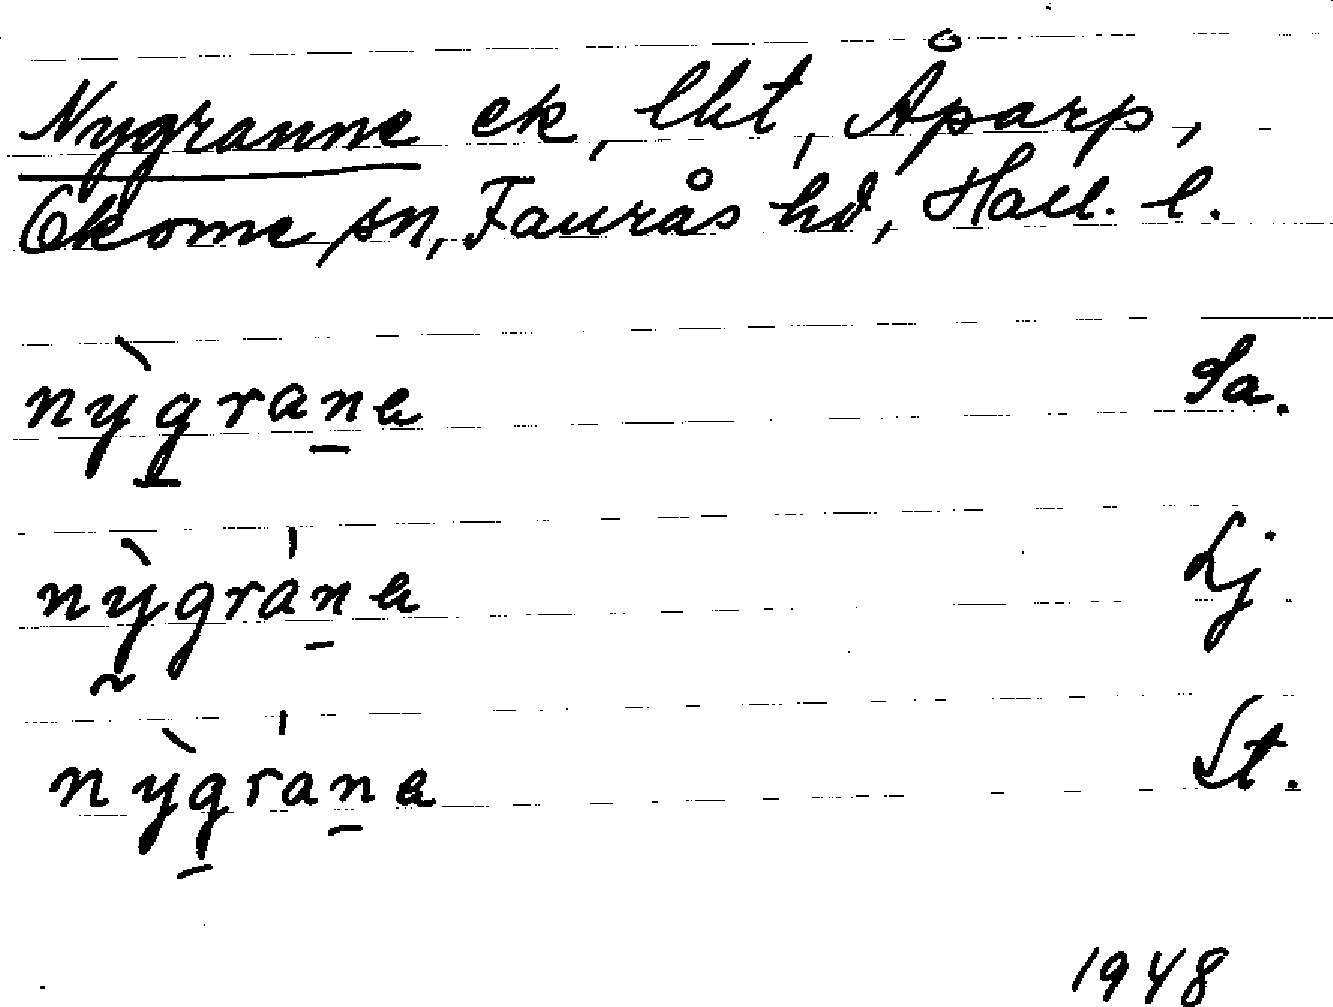 Nygranne ek, lht, Åparp,
Ekome sn, Faurås hd, Hall. l.
nỳgrana Sa.
nỳgrána Lj
nỳgrána St.
1948